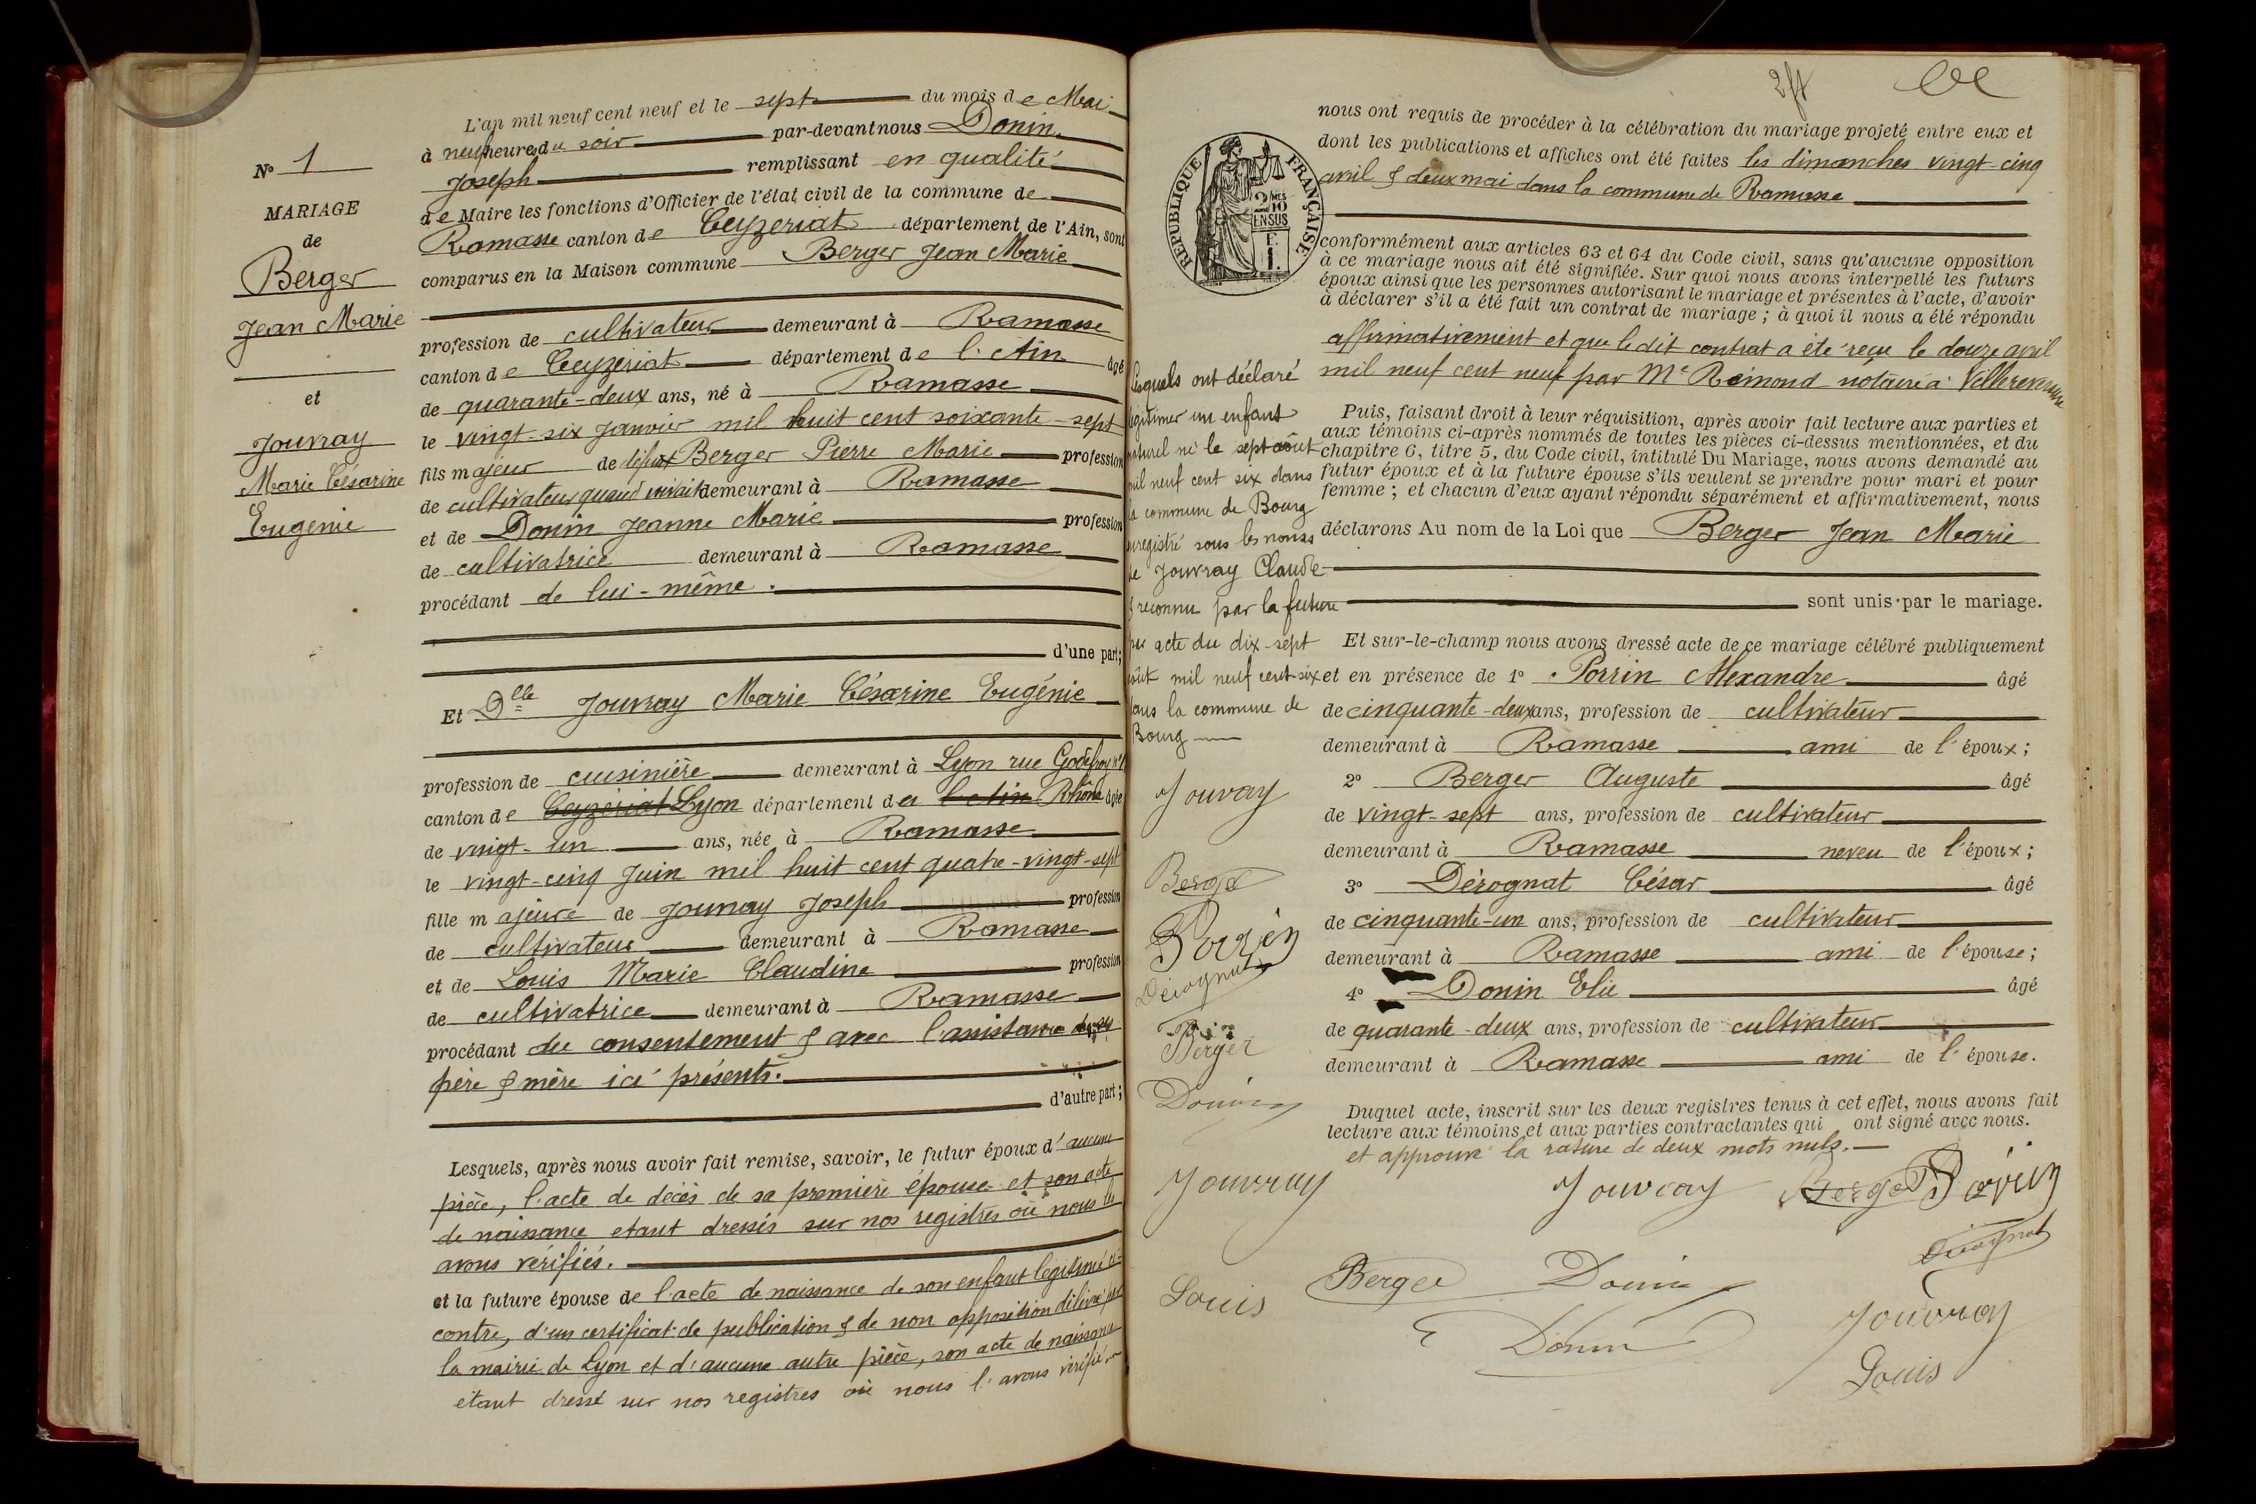 N° 1
MARIAGE
de
Berger
Jean Marie
et
Jouvray
Marie Césarine
Eugénie
L'an mil neuf cent neuf et le sept du mois de Mai
à neuf heures du soir par-devant nous Donin
Joseph remplissant en qualité
de Maire les fonctions d'Officier de l'état civil de la commune de
Ramasse canton de Ceyzeriat département de l'Ain, sont
comparus en la Maison commune Berger Jean Marie
profession de cultivateur demeurant à Ramasse
canton de Ceyzeriat département de l'Ain âgé
de quarante-deux ans, né à Ramasse
le vingt-six Janvier mil huit cent soixante-sept
fils majeur de défunt Berger Pierre Marie profession
de cultivateur quand vivait demeurant à Ramasse
et de Donin Jeanne Marie profession
de cultivatrice demeurant à Ramasse
procédant de lui-même.
d'une part;
Et Dlle Jouvray Marie Césarine Eugénie
profession de cuisinière demeurant à Lyon rue Godefroy
canton de Ceyzériat Lyon département de l'Ain Rhône âgée
de vingt-un ans, née à Ramasse
le vingt-cinq Juin mil huit cent quatre-vingt-sept
fille majeure de Jouvray Joseph profession
de cultivateur demeurant à Ramasse
et de Louis Marie Claudine profession
de cultivatrice demeurant à Ramasse
procédant du consentement & avec l'assistance de ses
père & mère ici présents.
d'autre part;
Lesquels, après nous avoir fait remise, savoir, le futur époux d'aucune
pièce, l'acte de décès de sa première épouse et son acte
de naissance etant dressés sur nos registres où nous les
avons vérifiés.
et la future épouse de l'acte de naissance de son enfant légitimé ci-
contre, d'un certificat de publication & de non opposition délivré par
la mairie de Lyon et d'aucune autre pièce, son acte de naissance
étant dressé sur nos registres où nous l'avons vérifié
RÉPUBLIQUE FRANÇAISE
2/10 MES
EN SUS
F.
1.
Lesquels ont déclaré
légitimer un enfant
naturel né le sept août
mil neuf cent six dans
la commune de Bourg
enregistré sous les noms
de Jouvray Claude
& reconnu par la future
par acte du dix-sept
août mil neuf cent-six
dans la commune de
Bourg
Jouvray
Berger
Porrin
Dérognat
Berger
Donin
Jouvray
Louis
nous ont requis de procéder à la célébration du mariage projeté entre eux et
dont les publications et affiches ont été faites les dimanches vingt-cinq
avril & deux mai dans la commune de Ramasse
conformément aux articles 63 et 64 du Code civil, sans qu'aucune opposition
à ce mariage nous ait été signifiée. Sur quoi nous avons interpellé les futurs
époux ainsi que les personnes autorisant le mariage et présentes à l'acte, d'avoir
à déclarer s'il a été fait un contrat de mariage; à quoi il nous a été répondu
affirmativement et que le dit contrat a été reçu le douze avril
mil neuf cent neuf par Me Rémond notaire à Villereversure
Puis, faisant droit à leur réquisition, après avoir fait lecture aux parties et
aux témoins ci-après nommés de toutes les pièces ci-dessus mentionnées, et du
chapitre 6, titre 5, du Code civil, intitulé Du Mariage, nous avons demandé au
futur époux et à la future épouse s'ils veulent se prendre pour mari et pour
femme; et chacun d'eux ayant répondu séparément et affirmativement, nous
déclarons Au nom de la Loi que Berger Jean Marie
sont unis par le mariage.
Et sur-le-champ nous avons dressé acte de ce mariage célébré publiquement
et en présence de 1° Porrin Alexandre âgé
de cinquante-deux ans, profession de cultivateur
demeurant à Ramasse ami de l'époux;
2° Berger Auguste âgé
de vingt-sept ans, profession de cultivateur
demeurant à Ramasse neveu de l'époux;
3° Dérognat César âgé
de cinquante-un ans, profession de cultivateur
demeurant à Ramasse ami de l'épouse;
4° Donin Elie âgé
de quarante-deux ans, profession de cultivateur
demeurant à Ramasse ami de l'épouse.
Duquel acte, inscrit sur les deux registres tenus à cet effet, nous avons fait
lecture aux témoins et aux parties contractantes qui ont signé avec nous.
et approuvé la rature de deux mots nuls.
Jouvray Berger Porrin
Dérognat
Berger Donin
Jouvray
Donin
Louis